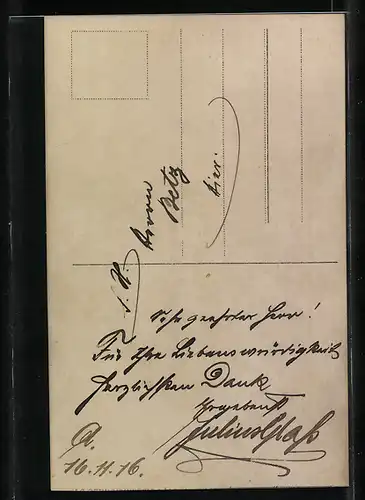 S. H.
Herrn
Betz
hier.
Sehr geehrter Herr!
Für Ihre Liebenswürdigkeit
herzlichsten Dank
Ergebenst
Julius Glaß
A.
16.11.16.